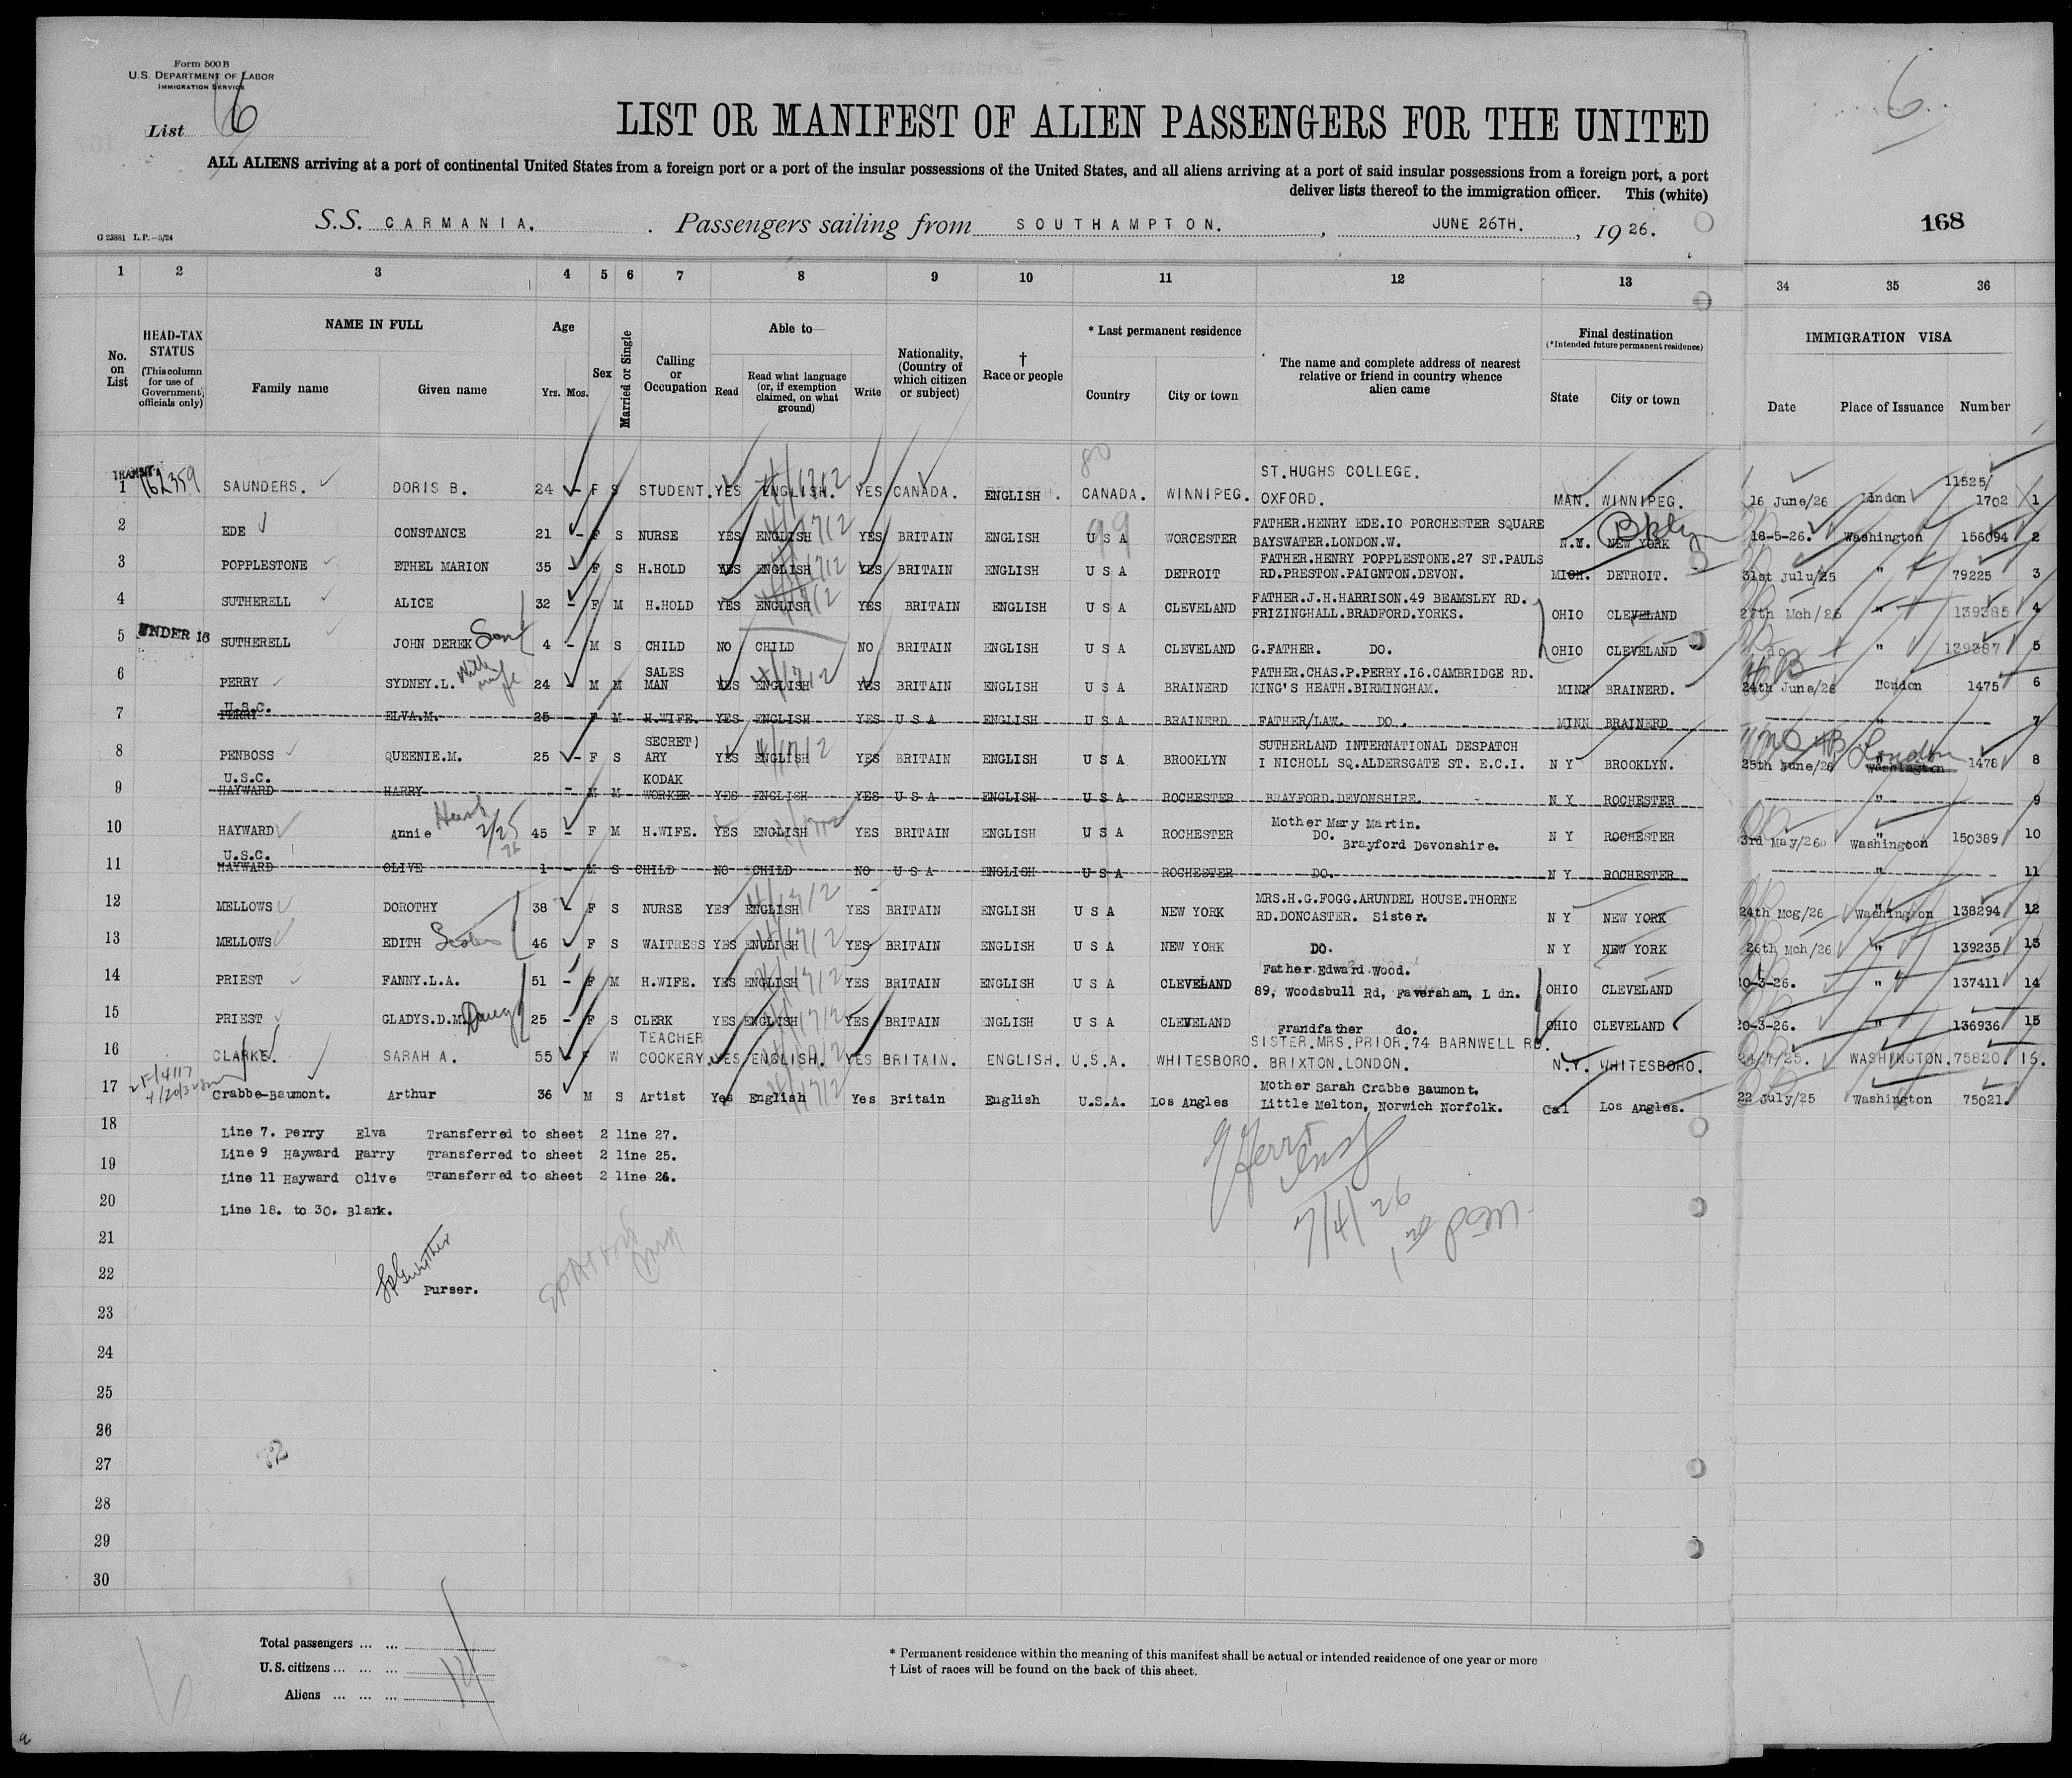 Form 500 B
U.S. DEPARTMENT OF LABOR
IMMIGRATION SERVICE
List 6
6
LIST OR MANIFEST OF ALIEN PASSENGERS FOR THE UNITED
ALL ALIENS arriving at a port of continental United States from a foreign port or a port of the insular possessions of the United States, and all aliens arriving at a port of said insular possessions from a foreign port, a port
deliver lists thereof to the immigration officer. This (white)
S.S. CARMANIA. Passengers sailing from SOUTHAMPTON. , JUNE 26TH. , 1926.
168
G 23881 L.P.—5/24
1 2 3 4 5 6 7 8 9 10 11 12 13 34 35 36
No. on List
HEAD-TAX STATUS (This column for use of Government officials only)
NAME IN FULL Family name Given name
Age Yrs. Mos.
Sex
Married or Single
Calling or Occupation
Able to— Read Read what language (or, if exemption claimed, on what ground) Write
Nationality, (Country of which citizen or subject)
† Race or people
* Last permanent residence Country City or town
The name and complete address of nearest relative or friend in country whence alien came
Final destination (*Intended future permanent residence) State City or town
IMMIGRATION VISA Date Place of Issuance Number
TRANSIT
1 162359 SAUNDERS. DORIS B. 24 – F S STUDENT. YES ENGLISH. YES CANADA. ENGLISH. CANADA. WINNIPEG. ST.HUGHS COLLEGE. OXFORD. MAN. WINNIPEG. 16 June/26 London 11525/ 1702 1
2 EDE CONSTANCE 21 – F S NURSE YES ENGLISH YES BRITAIN ENGLISH U S A WORCESTER FATHER.HENRY EDE.IO PORCHESTER SQUARE BAYSWATER.LONDON.W. N.Y. NEW YORK Bklyn 18-5-26. Washington 156094 2
3 POPPLESTONE ETHEL MARION 35 F S H.HOLD YES ENGLISH YES BRITAIN ENGLISH U S A DETROIT FATHER.HENRY POPPLESTONE.27 ST.PAULS RD.PRESTON.PAIGNTON.DEVON. MICH. DETROIT. 31st Julu/25 " 79225 3
4 SUTHERELL ALICE 32 – F M H.HOLD YES ENGLISH YES BRITAIN ENGLISH U S A CLEVELAND FATHER.J.H.HARRISON.49 BEAMSLEY RD. FRIZINGHALL.BRADFORD.YORKS. OHIO CLEVELAND 27th Mch/26 " 139385 4
5 UNDER 16 SUTHERELL JOHN DEREK Son 4 – M S CHILD NO CHILD NO BRITAIN ENGLISH U S A CLEVELAND G.FATHER. DO. OHIO CLEVELAND do " 139387 5
6 PERRY SYDNEY.L. 24 – M M SALES MAN YES ENGLISH YES BRITAIN ENGLISH U S A BRAINERD FATHER.CHAS.P.PERRY.I6.CAMBRIDGE RD. KING'S HEATH.BIRMINGHAM. MINN BRAINERD. 24th June/26 London 1475 6
U.S.C.
7 PERRY ELVA.M. 25 – F M H.WIFE. YES ENGLISH YES U S A ENGLISH U S A BRAINERD FATHER/LAW. DO. MINN BRAINERD " 7
8 PENBOSS QUEENIE.M. 25 – F S SECRET) ARY YES ENGLISH YES BRITAIN ENGLISH U S A BROOKLYN SUTHERLAND INTERNATIONAL DESPATCH I NICHOLL SQ.ALDERSGATE ST. E.C.I. N Y BROOKLYN. 25th June/26 London Washington 1478 8
U.S.C.
9 HAYWARD HARRY – M M KODAK WORKER YES ENGLISH YES U S A ENGLISH U S A ROCHESTER BRAYFORD.DEVONSHIRE. N Y ROCHESTER " 9
10 HAYWARD Annie 45 – F M H.WIFE. YES ENGLISH YES BRITAIN ENGLISH U S A ROCHESTER Mother Mary Martin. DO. Brayford Devonshire. N Y ROCHESTER 3rd May/26 Washington 150389 10
U.S.C.
11 HAYWARD OLIVE 1 – M S CHILD NO CHILD NO U S A ENGLISH U S A ROCHESTER DO. N Y ROCHESTER " 11
12 MELLOWS DOROTHY 38 – F S NURSE YES ENGLISH YES BRITAIN ENGLISH U S A NEW YORK MRS.H.G.FOGG.ARUNDEL HOUSE.THORNE RD.DONCASTER. Sister. N Y NEW YORK 24th Mcg/26 Washington 138294 12
13 MELLOWS EDITH 46 F S WAITRESS YES ENGLISH YES BRITAIN ENGLISH U S A NEW YORK DO. N Y NEW YORK 26th Mch/26 " 139235 13
14 PRIEST FANNY.L.A. 51 – F M H.WIFE. YES ENGLISH YES BRITAIN ENGLISH U S A CLEVELAND Father Edward Wood. 89, Woodsbull Rd, Faversham, L dn. OHIO CLEVELAND 0-3-26. " 137411 14
15 PRIEST GLADYS.D.M. Daug 25 – F S CLERK YES ENGLISH YES BRITAIN ENGLISH U S A CLEVELAND Frandfather do. OHIO CLEVELAND 0-3-26. " 136936 15
16 CLARKE. SARAH A. 55 – F W TEACHER COOKERY. YES ENGLISH. YES BRITAIN. ENGLISH. U.S.A. WHITESBORO. SISTER.MRS.PRIOR.74 BARNWELL RD. BRIXTON.LONDON. N.Y. WHITESBORO. 24/7/25. WASHINGTON. 75820 16.
17 Crabbe-Baumont. Arthur 36 M S Artist Yes English Yes Britain English U.S.A. Los Angles Mother Sarah Crabbe Baumont. Little Melton, Norwich Norfolk. Cal Los Angles. 22 July/25 Washington 75021.
18 Line 7. Perry Elva Transferred to sheet 2 line 27.
Line 9 Hayward Harry Transferred to sheet 2 line 25.
19 Line 11 Hayward Olive Transferred to sheet 2 line 26.
20 Line 18. to 30. Blank.
21
22 Purser.
23
24
25
26
27
28
29
30
Total passengers ... ...
U.S. citizens ... ... ...
Aliens ... ... ...
14
* Permanent residence within the meaning of this manifest shall be actual or intended residence of one year or more
† List of races will be found on the back of this sheet.